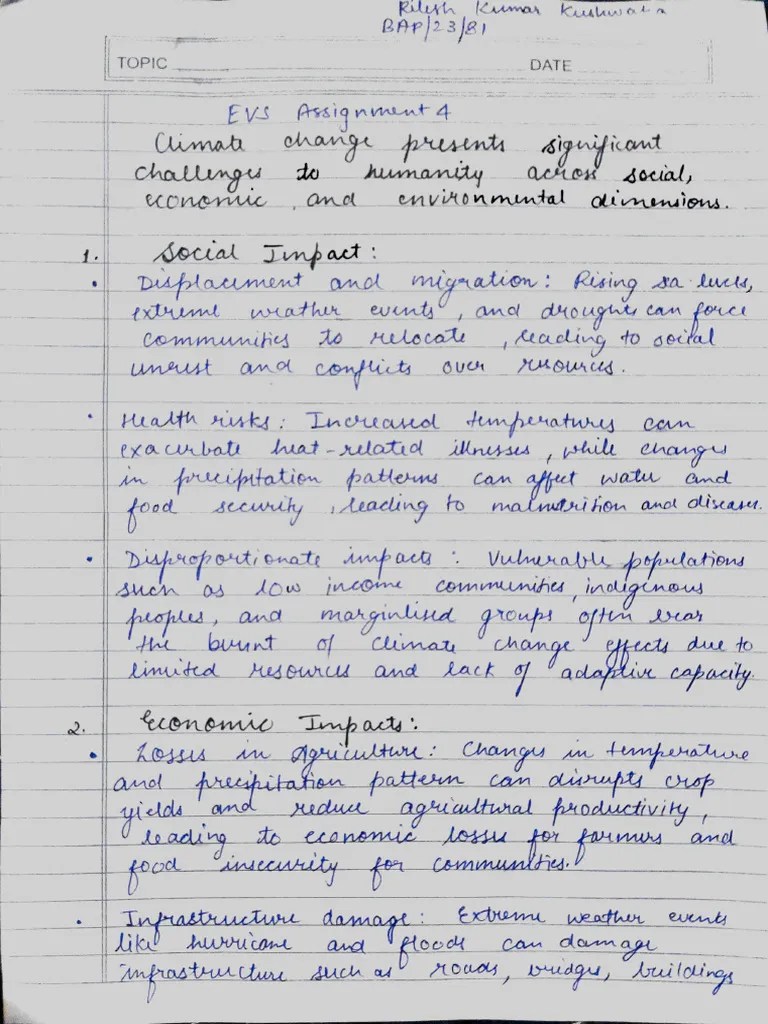 Ritesh Kumar Kushwaha
BAP/23/81
TOPIC DATE
EVS Assignment 4
Climate change presents significant
challenges to humanity across social,
economic, and environmental dimensions.
1. Social Impact:
• Displacement and migration: Rising sa levels,
extreme weather events, and droughts can force
communities to relocate, leading to social
unrest and conflicts over resources.
• Health risks: Increased temperatures can
exacerbate heat-related illnesses, while changes
in precipitation patterns can affect water and
food security, leading to malnutrition and diseases.
• Disproportionate impacts: Vulnerable populations
such as low income communities, indigenous
peoples, and marginlised groups often bear
the burnt of climate change effects due to
limited resources and lack of adaptive capacity.
2. Economic Impacts:
• Losses in Agriculture: Changes in temperature
and precipitation pattern can disrupts crop
yields and reduce agricultural productivity,
leading to economic losses for farmers and
food insecurity for communities.
• Infrastructure damage: Extreme weather events
like hurricane and floods can damage
infrastructure such as roads, bridges, buildings